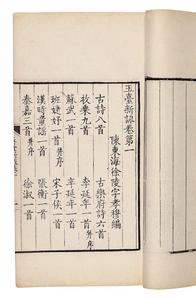 玉臺新詠卷第一
陳東海徐陵字孝穆編
古詩八首
古樂府詩六首
枚乘九首
李延年一首
蘇武一首
辛延年一首
班婕妤一首并序
宋子侯一首
漢時童謠一首
張衡一首
秦嘉三首并序
徐淑一首